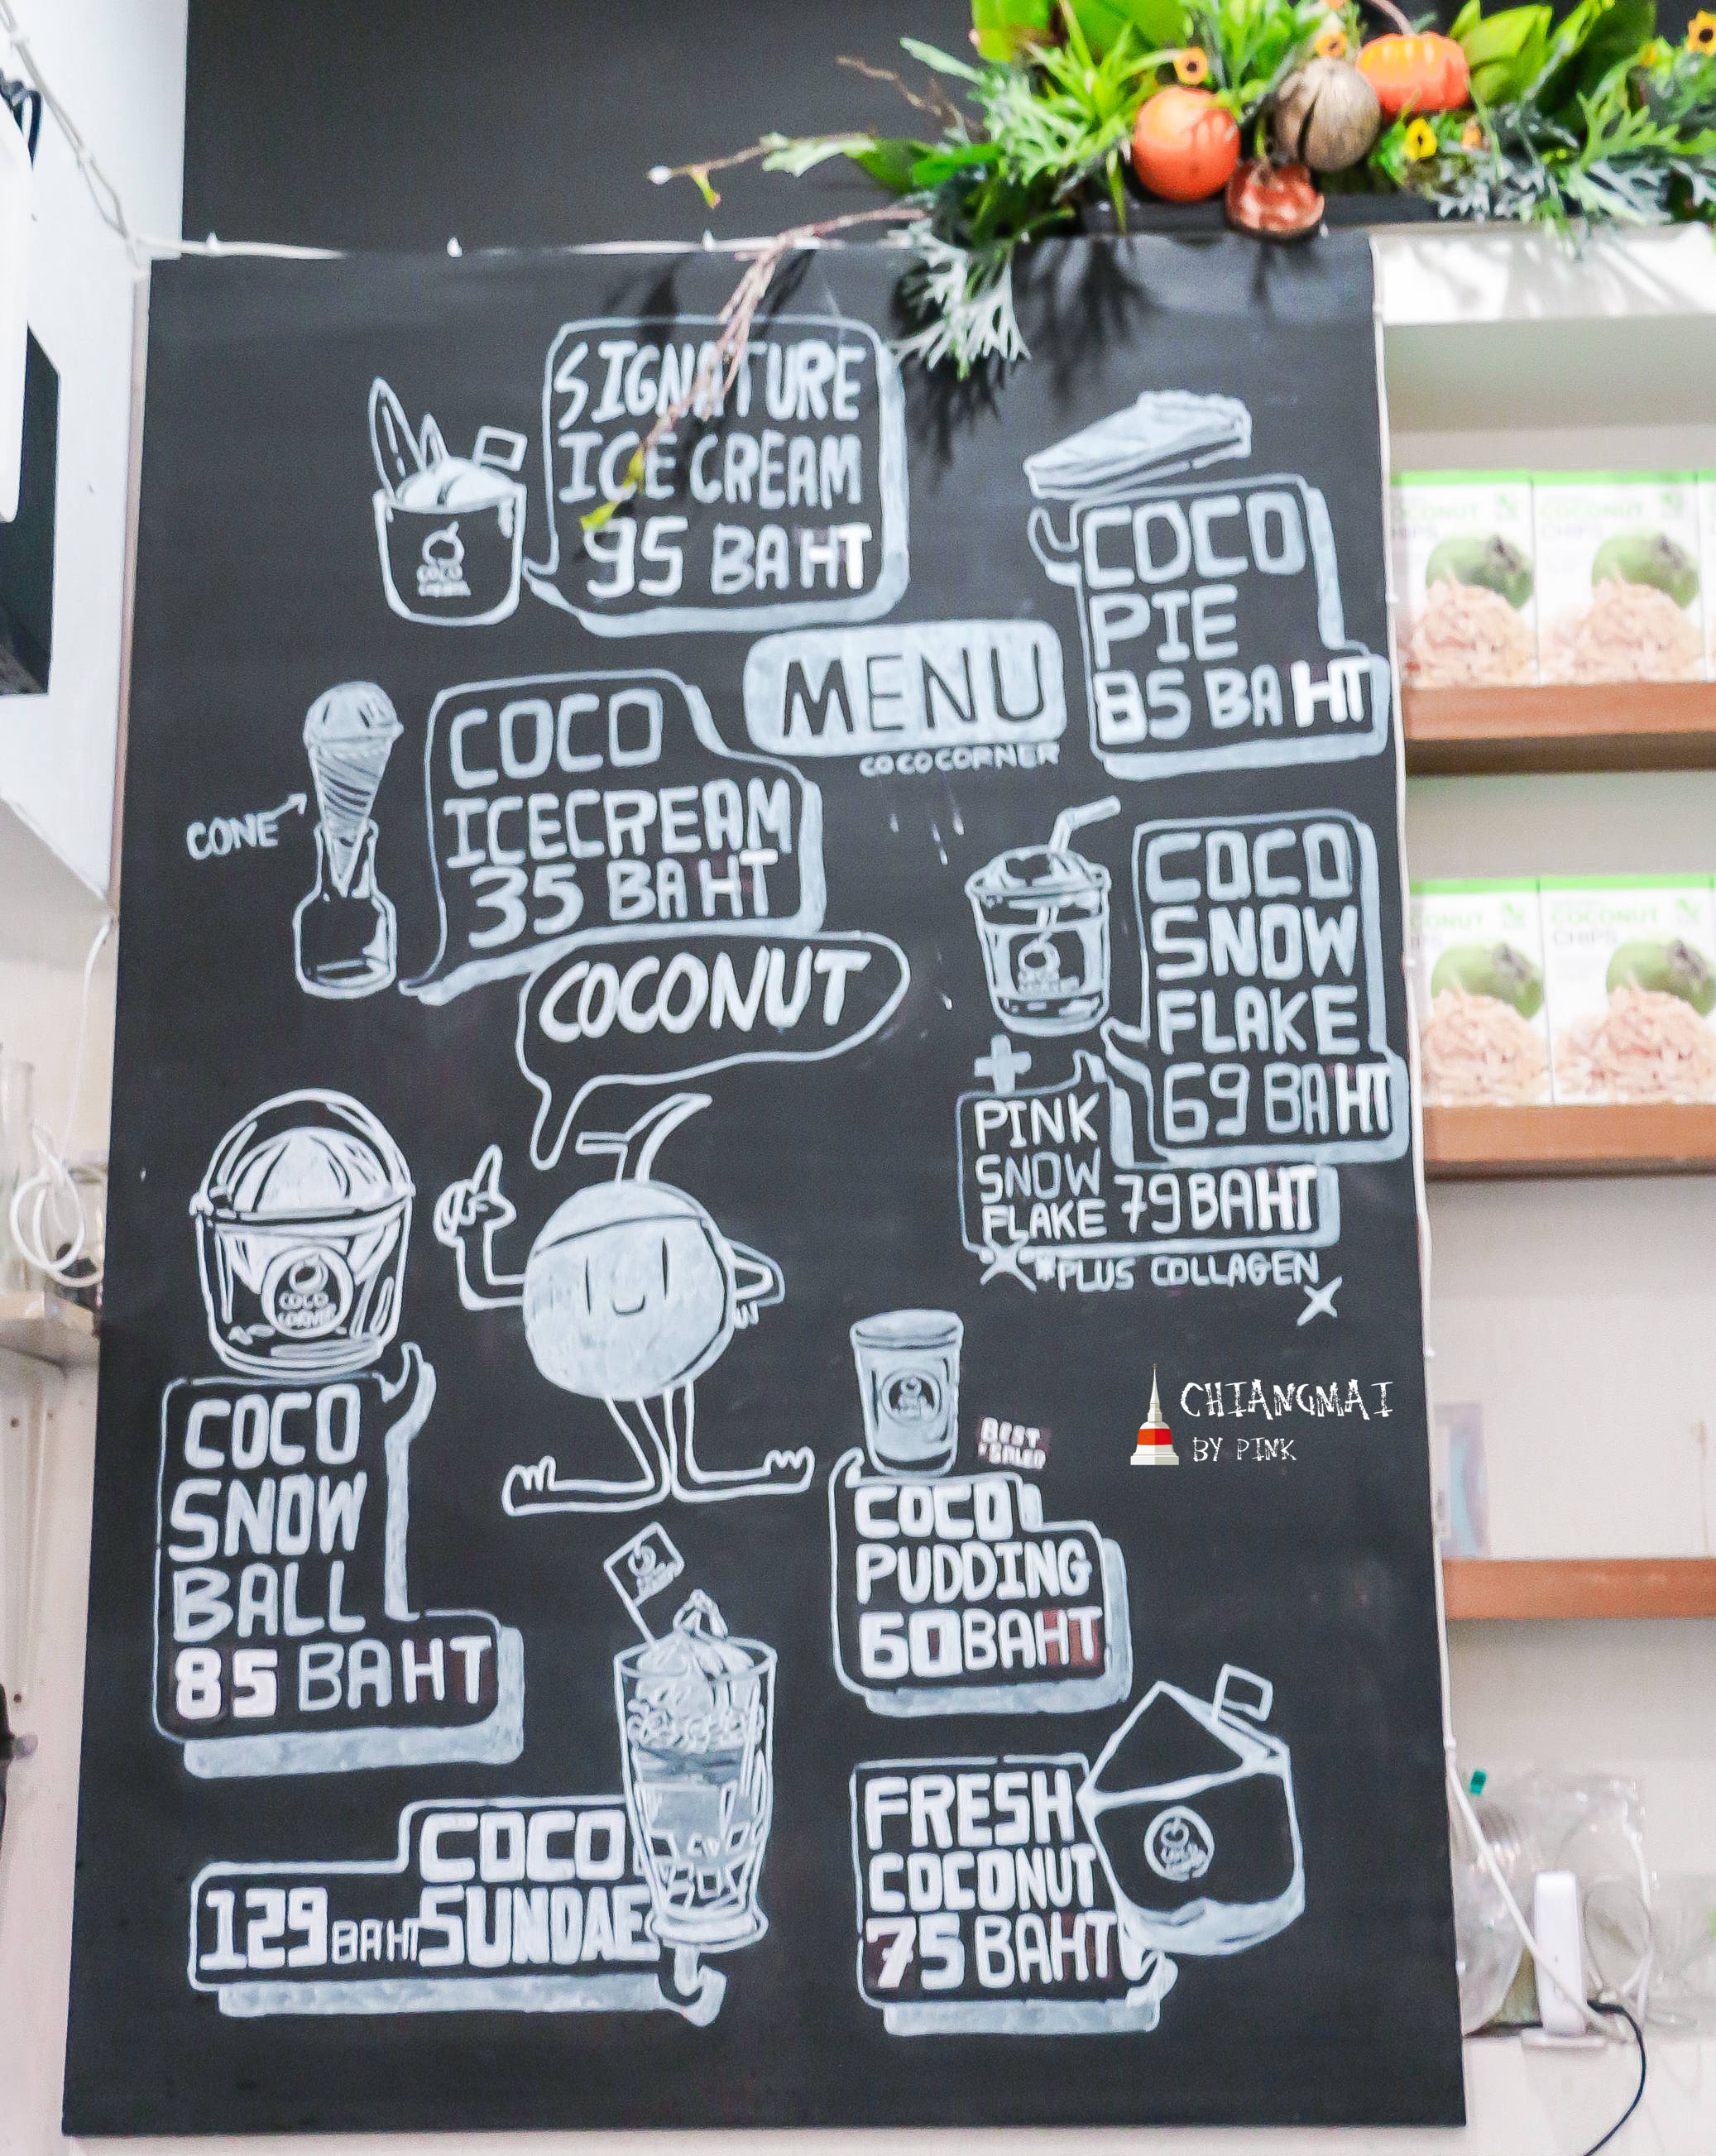 SIGNATURE
ICE CREAM
95 BAHT
COCO
CORNER
COCO
PIE
85 BAHT
MENU
COCOCORNER
COCO
ICECREAM
35 BAHT
CONE
COCO
SNOW
FLAKE
69 BAHT
PINK
SNOW
FLAKE 79 BAHT
*PLUS COLLAGEN
COCONUT
COCO
CORNER
COCO
SNOW
BALL
85 BAHT
BEST
COCO
PUDDING
60 BAHT
CHIANGMAI
BY PINK
COCO
129 BAHT SUNDAE
FRESH
COCONUT
75 BAHT
COCONUT
CHIPS
COCONUT
CHIPS